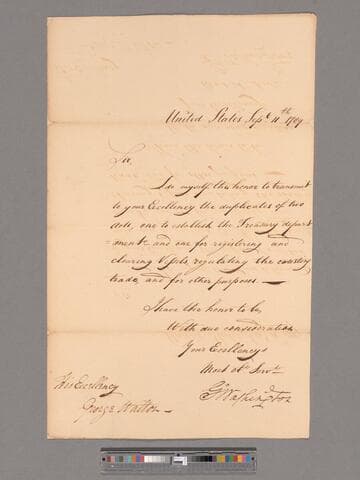 United States Sepr 11th 1789
Sir,
I do myself the honor to transmit
to your Excellency the duplicates of two
Acts, one to establish the Treasury depart
=ment and one for registering and
clearing Vessels, regulating the coasting
trade, and for other purposes. —
I have the honor to be,
With due consideration
Your Excellency's
Most obt. Servt.
G. Washington
His Excellency
George Walton —